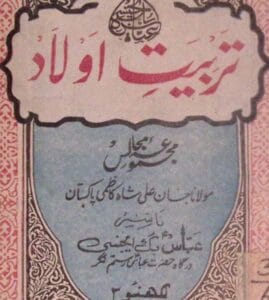 تربیت اولاد
مجموعہ مجالس
مولانا جان علی شاہ کاظمی پاکستان
ناشر
عباس بک ایجنسی
درگاہ حضرت عباس رستم نگر
لکھنؤ